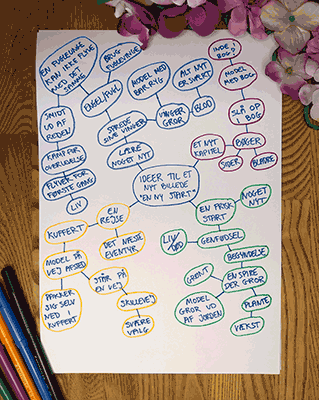 EN FUGLEUNGE
KAN IKKE FLYVE
MED DET
SAMME
BRUG
FUGLEVINGE
INDE I
BOG?
MODEL MED
BAR RYG
ALT NYT
ER SVÆRT
MODEL
MED BOG
SMIDT
UD AF
REDEN
ENGEL/FUGL
VINGER
GROR
BLOD
SLÅ OP
BOG
SPREDE
SINE VINGER
KAMP FOR
OVERLEVELSE
LÆRE
NOGET NYT
ET NYT
KAPITEL
BØGER
SIDER
BLADRE
FLYVER FOR
FØRSTE GANG
LIV
IDEER TIL ET
NYT BILLEDE
"EN NY START"
EN
REJSE
EN FRISK
START
NOGET
NYT
KUFFERT
DET NÆSTE
EVENTYR
LIV/
DØD
GENFØDSEL
MODEL PÅ
VEJ AFSTED
BEGYNDELSE
STÅR PÅ
EN VEJ
GRØNT
EN SPIRE
DER GROR
PAKKER
SIG SELV
NED I
KUFFERT
SKILLEVEJ
MODEL
GROR UD
AF JORDEN
PLANTE
SVÆRE
VALG
VÆKST